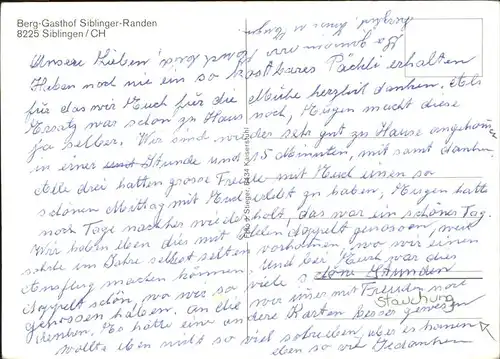 Berg-Gasthof Siblinger-Randen
8225 Siblingen/CH
Unsere Lieben
Haben noch nie ein so kostbares Päckli erhalten
für das wir Euch für die Mühe herzlich danken. Als
Ersatz war schon zu Haus noch, Eugen macht diese
ja selber. Wir sind wieder sehr gut zu Hause angekommen
in einer Stunde und 15 Minuten, mit samt
Alle drei hatten grosse Freude mit Euch einen so
schönen Mittag mit Euch erlebt zu haben, Eugen hatte
noch Tage nachher wiederholt, das war ein schöner Tag.
Wir haben eben dies mit allen doppelt genossen, weil
im Jahre selbst selten vorhatten, wo wir einen
Ausflug machen können. Und bei Euch war dies
doppelt schön, wo wir so viele schöne Stunden
genossen haben. an die wir immer mit Freuden noch
denken. Es hätte eine andere Karten besser gewesen
wollte eben nicht so viel schreiben, aber es kamen
eben so viel Gedanken
Stauchung
Foto + Stenger, 8434 Kaiserstuhl